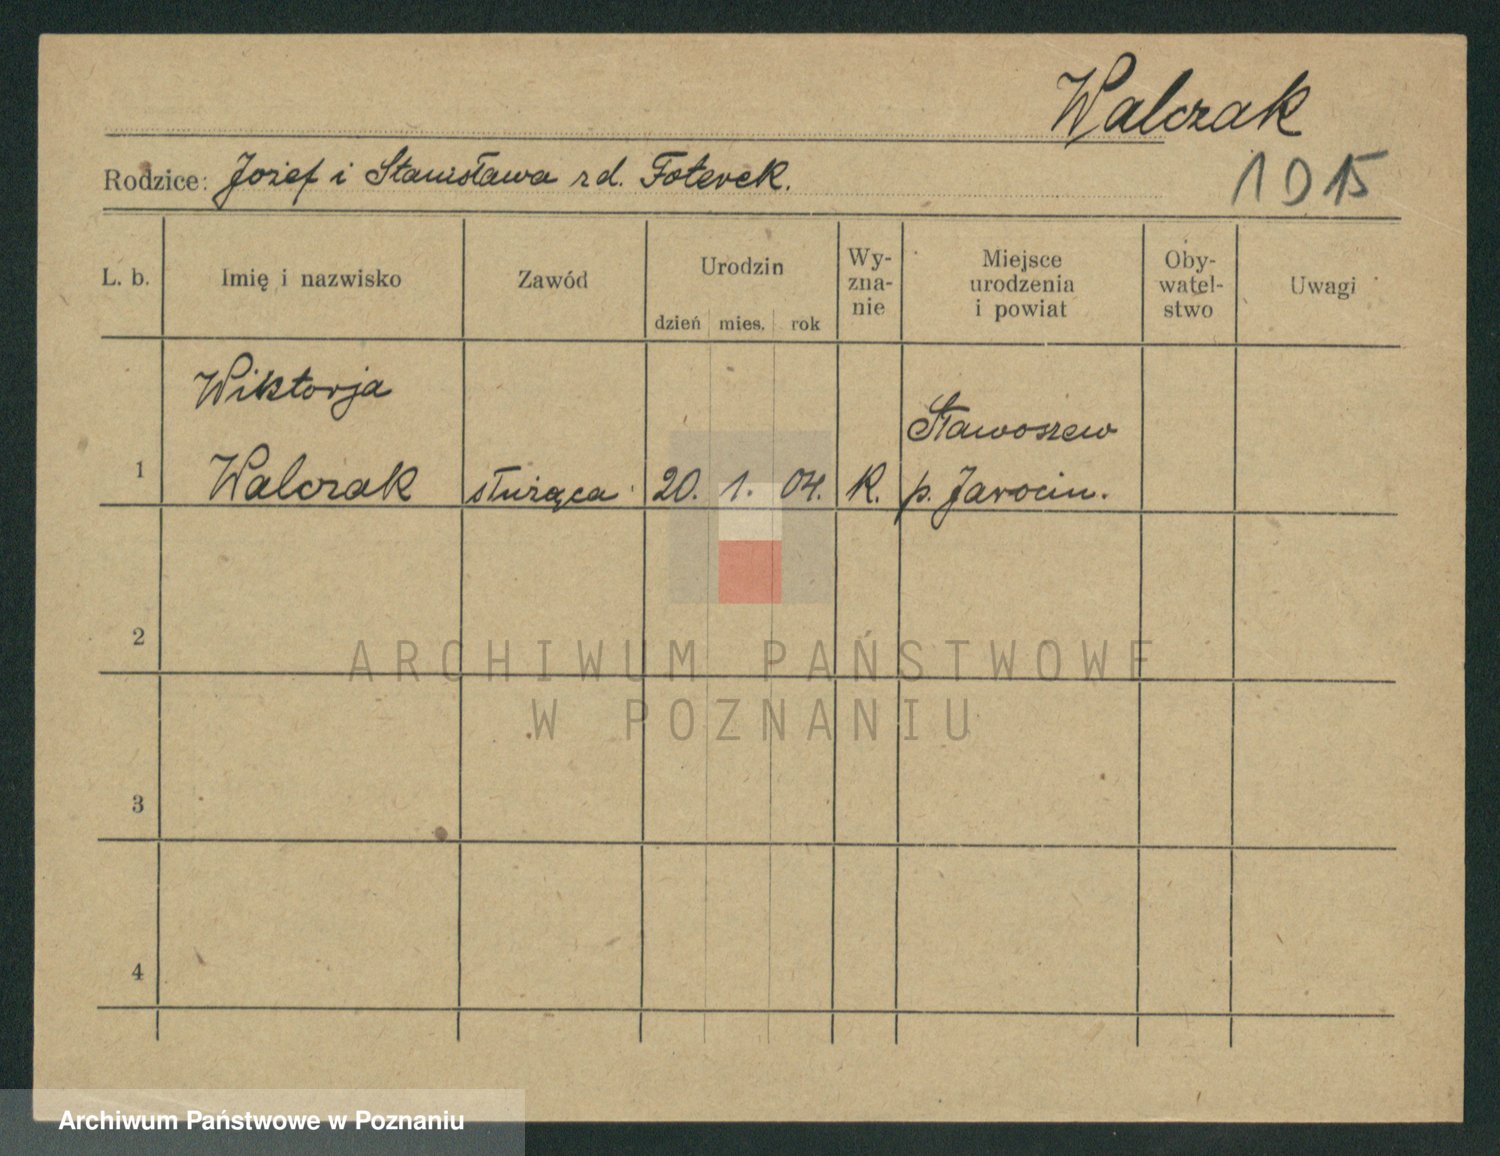 Walczak
Rodzice: Józef i Stanisława rd. Foterek.
1 D 15
L. b. Imię i nazwisko Zawód Urodzin dzień mies. rok Wy-zna-nie Miejsce urodzenia i powiat Oby-watel-stwo Uwagi
Wiktorja
Sławoszew
1 Walczak służąca 20. 1. 04. K. p. Jarocin.
2
ARCHIWUM PAŃSTWOWE
W POZNANIU
3
4
Archiwum Państwowe w Poznaniu